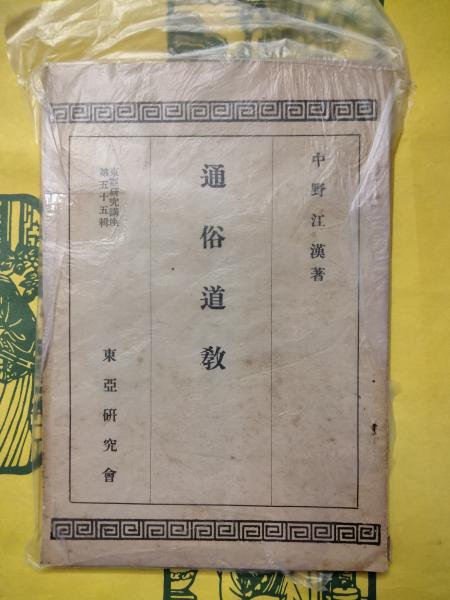 中野江漢著
通俗道教
東亞研究講座
第五十五輯
東亞研究會